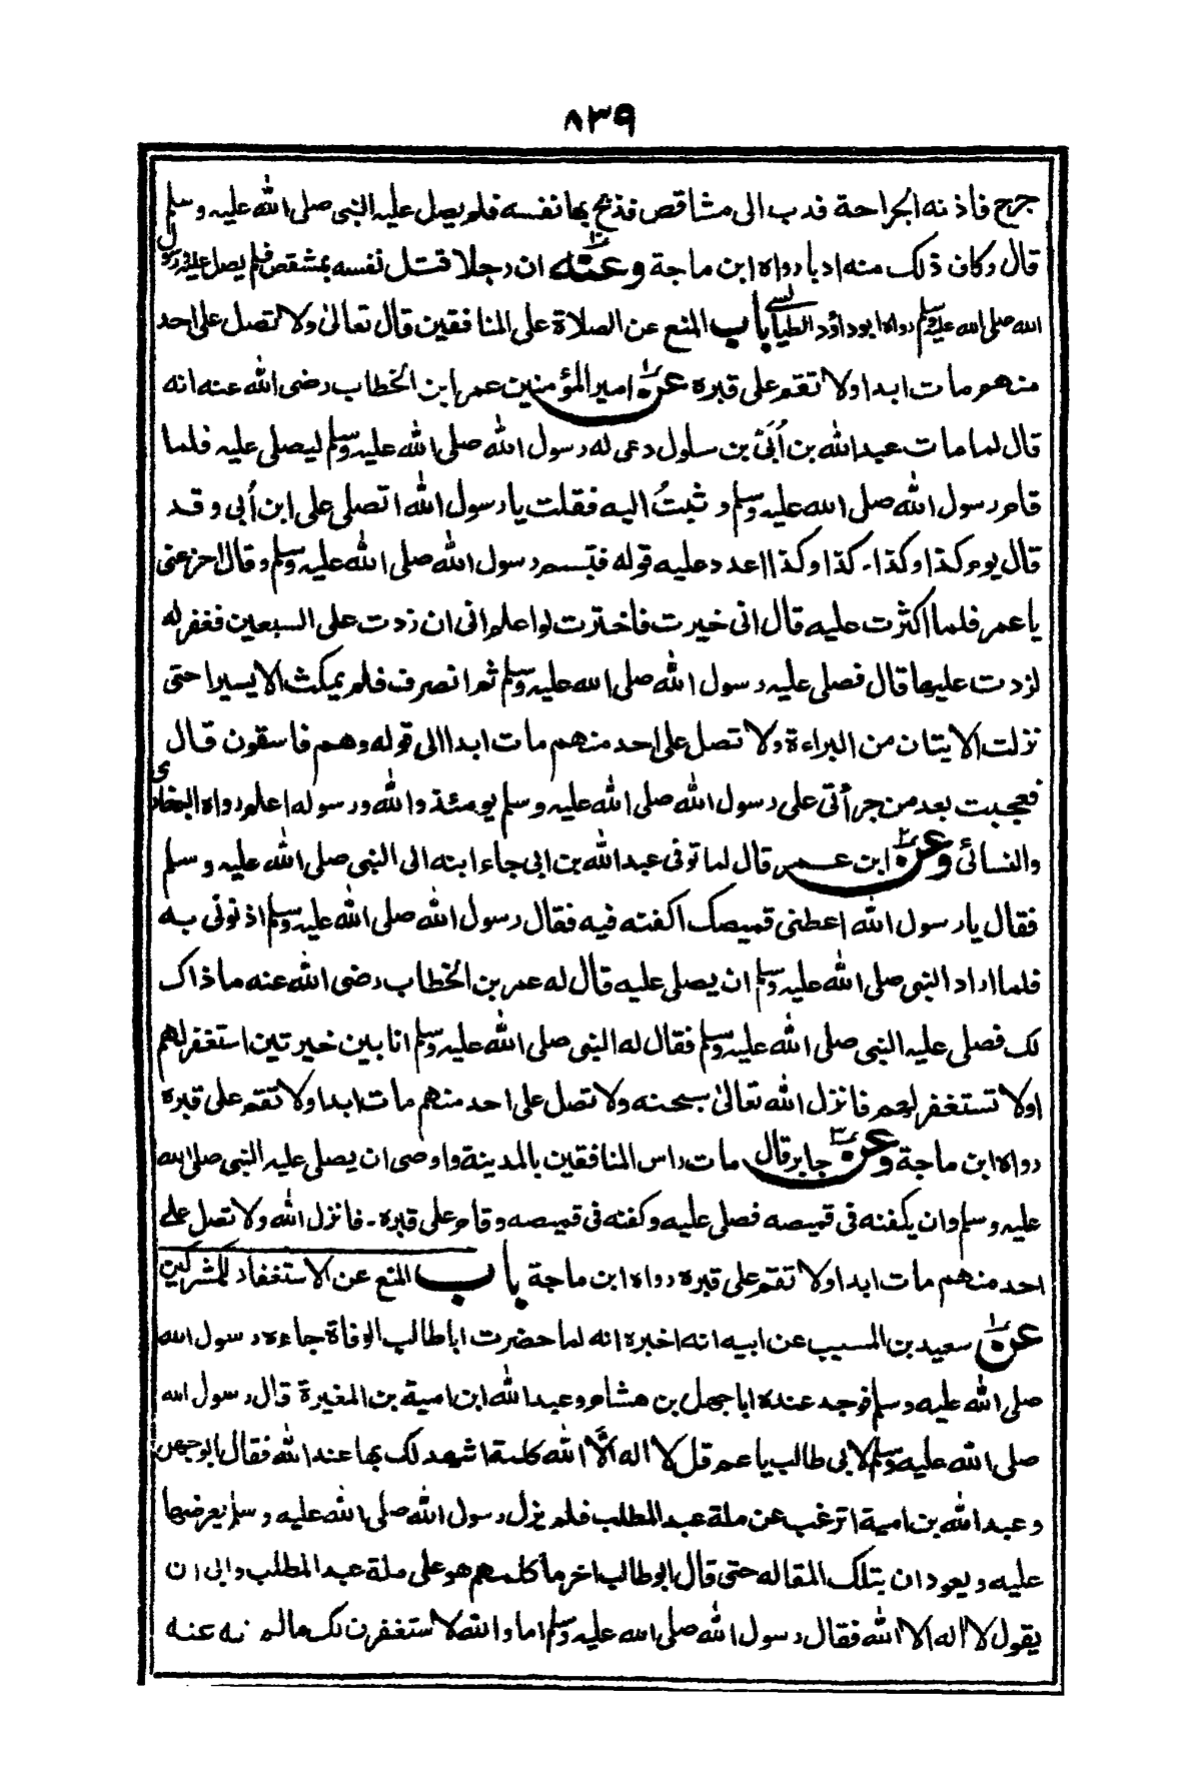 ٨٣٩
جرح فاذنه الجراحة فدب الى مشاقص فذبح بها نفسه فلم يصل عليه النبى صلى الله عليه وسلم
قال وكان ذلك منه ادبا رواه ابن ماجة وعنه ان رجلا قتل نفسه بمشقص فلم يصل عليه رسول
الله صلى الله عليه وسلم رواه ابوداؤد الطيالسى باب المنع عن الصلاة على المنافقين قال تعالىٰ ولا تصل على احد
منهم مات ابدا ولا تقم على قبره عن امير المؤمنين عمر ابن الخطاب رضى الله عنه انه
قال لما مات عبد الله بن اُبَىّ بن سلول دعى له رسول الله صلى الله عليه وسلم ليصلى عليه فلما
قام رسول الله صلى الله عليه وسلم وثبتُ اليه فقلت يا رسول الله اتصلى على ابن اُبى وقد
قال يوم كذا وكذا - كذا وكذا اعدد عليه قوله فتبسم رسول الله صلى الله عليه وسلم وقال اخر عنى
يا عمر فلما اكثرت عليه قال انى خيرت فاخترت لو اعلم انى ان زدت على السبعين فغفر له
لزدت عليها قال فصلى عليه رسول الله صلى الله عليه وسلم ثم انصرف فلم يمكث الا يسيرا حتى
نزلت الايتان من البراءة ولا تصل على احد منهم مات ابدا الى قوله وهم فاسقون قال
فعجبت بعد من جرأتى على رسول الله صلى الله عليه وسلم يومئذ والله ورسوله اعلم رواه البخارى
والنسائى وعن ابن عمر قال لما توفى عبد الله بن ابى جاء ابنه الى النبى صلى الله عليه وسلم
فقال يا رسول الله اعطنى قميصك اكفنه فيه فقال رسول الله صلى الله عليه وسلم اذنونى به
فلما اراد النبى صلى الله عليه وسلم ان يصلى عليه قال له عمر بن الخطاب رضى الله عنه ما ذاك
لك فصلى عليه النبى صلى الله عليه وسلم فقال له النبى صلى الله عليه وسلم انا بين خيرتين استغفر لهم
اولا تستغفر لهم فانزل الله تعالىٰ سبحنه ولا تصل على احد منهم مات ابدا ولا تقم على قبره
رواه ابن ماجة وعن جابر قال مات راس المنافقين بالمدينة واوصى ان يصلى عليه النبى صلى الله
عليه وسلم وان يكفنه فى قميصه فصلى عليه وكفنه فى قميصه وقام على قبره - فانزل الله ولا تصل على
احد منهم مات ابدا ولا تقم على قبره رواه ابن ماجة باب المنع عن الاستغفار للمشركين
عن سعيد بن المسيب عن ابيه انه اخبره انه لما حضرت اباطالب الوفاة جاءه رسول الله
صلى الله عليه وسلم فوجد عنده اباجهل بن هشام وعبد الله ابن امية بن المغيرة قال رسول الله
صلى الله عليه وسلم لابى طالب يا عم قل لا اله الّا الله كلمة اشهد لك بها عند الله فقال ابوجهل
وعبد الله بن امية اترغب عن ملة عبد المطلب فلم يزل رسول الله صلى الله عليه وسلم يعرضها
عليه ويعودان بتلك المقاله حتى قال ابوطالب اخر ما كلمهم هو على ملة عبد المطلب وابى ان
يقول لا اله الا الله فقال رسول الله صلى الله عليه وسلم اما والله لاستغفرن لك مالم نه عنه